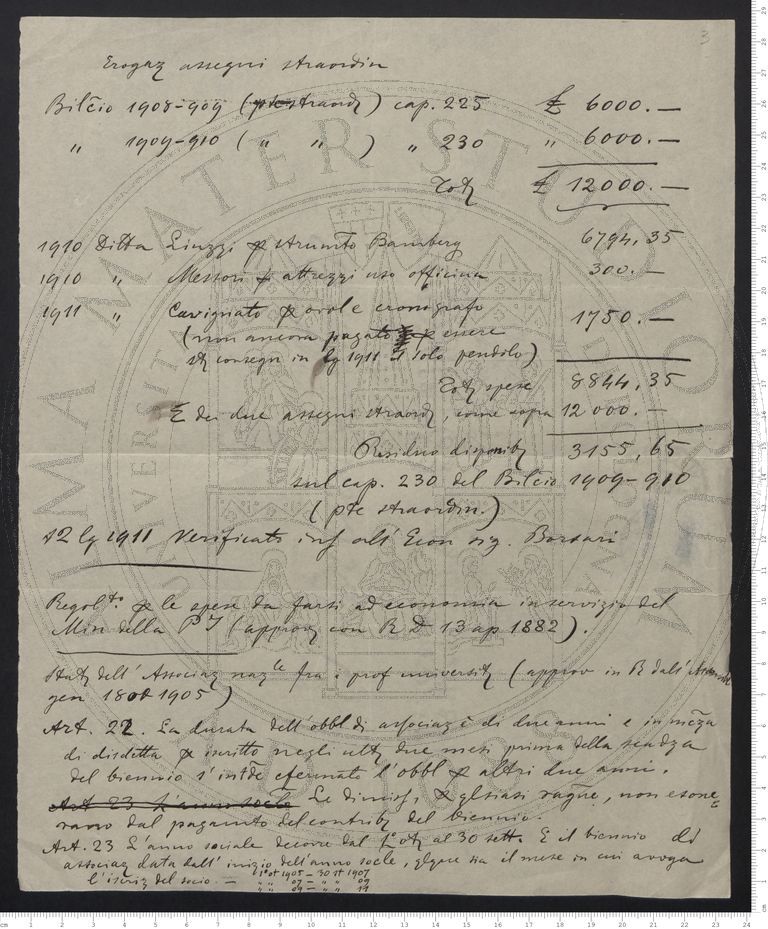 3
Erogaz assegni straordin
Bilcio 1908-909 (pte straordz) cap. 225 £ 6000.—
" 1909-910 ( " " ) " 230 " 6000.—
Totz £ 12000.—
1910 Ditta Liuzzi p strumto Bamberg 6794,35
1910 " Messori p attrezzi uso officina 300.—
1911 " Cavignato p orol e cronografo 1750.—
(non ancora pagato p essere
consegn in lg 1911 il solo pendolo)
Totz spese 8844,35
E dei due assegni straordz, come sopra 12000.—
Residuo disponibz 3155,65
sul cap. 230 del Bilcio 1909-910
(pte straordin.)
12 lg 1911 Verificato all' Econ sig. Borsari
Regolto. p le spese da farsi ad economia in servizio del
Min della PI (approvz con R D 13 ap 1882).
Statz dell' Associaz nazle fra i prof universitz (approv in R dall'
gen 18 ot 1905)
Art. 22. La durata dell' obbl di associaz è di due anni e in mcza
di disdetta p iscritto negli ultz due mesi prima della scadza
del biennio s'intde confermato l'obbl p altri due anni.
Art 23 L'anno socle Le dimiss, p qlsiasi ragne, non esone=
rano dal pagamto del contribz del biennio.
Art. 23 L'anno sociale decorre dal 1° otz al 30 sett. E il biennio di
associaz data dall' inizio dell' anno socle, qlque sia il mese in cui avvega
l'iscriz del socio.— 1° ot 1905 – 30 st 1907
" " 07 – " " 09
" " 09 – " " 11
ALMA MATER STUDIORUM